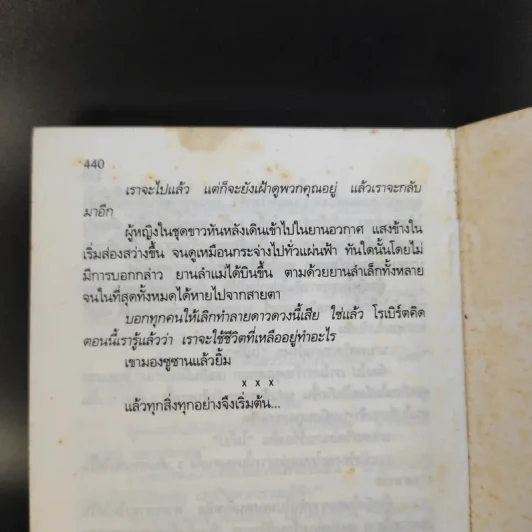 440
เราจะไปแล้ว แต่ก็จะยังเฝ้าดูพวกคุณอยู่ แล้วเราจะกลับ
มาอีก
ผู้หญิงในชุดขาวหันหลังเดินเข้าไปในยานอวกาศ แสงข้างใน
เริ่มส่องสว่างขึ้น จนดูเหมือนกระจ่างไปทั่วแผ่นฟ้า ทันใดนั้นโดยไม่
มีการบอกกล่าว ยานลำแม่ได้บินขึ้น ตามด้วยยานลำเล็กทั้งหลาย
จนในที่สุดทั้งหมดได้หายไปจากสายตา
บอกทุกคนให้เลิกทำลายดาวดวงนี้เสีย ใช่แล้ว โรเบิร์ตคิด
ตอนนี้เรารู้แล้วว่า เราจะใช้ชีวิตที่เหลืออยู่ทำอะไร
เขามองซูซานแล้วยิ้ม
x x x
แล้วทุกสิ่งทุกอย่างจึงเริ่มต้น...